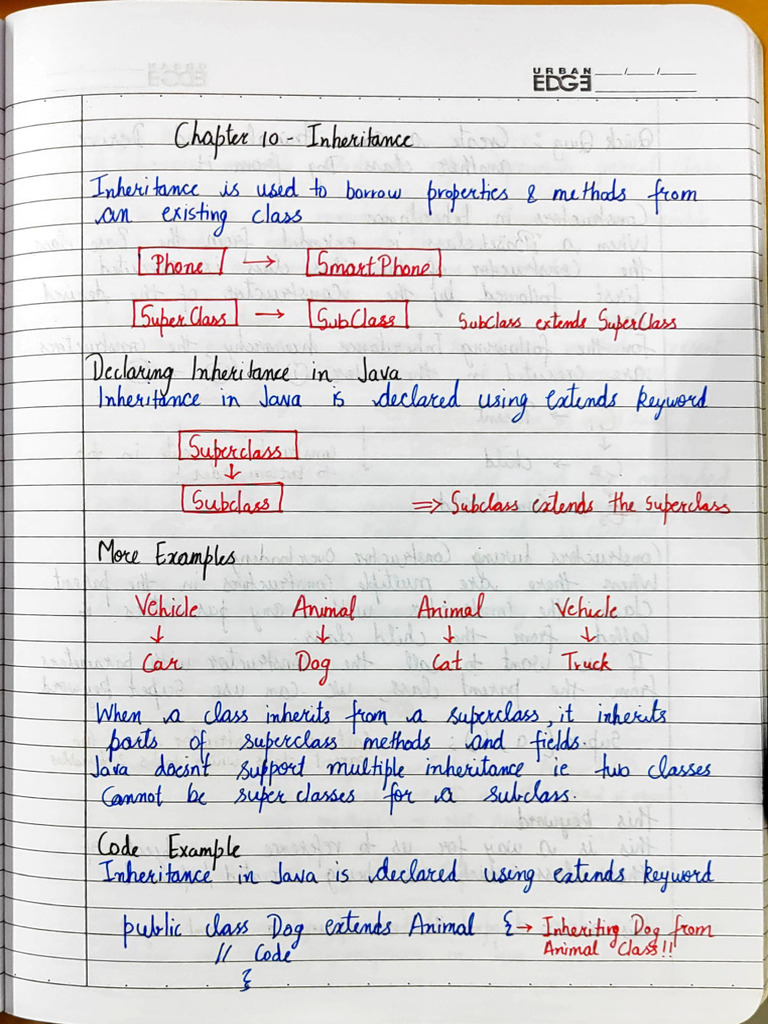 URBAN
EDGE
Chapter 10 - Inheritance
Inheritance is used to borrow properties & methods from
an existing class
Phone → SmartPhone
SuperClass → SubClass SubClass extends SuperClass
Declaring Inheritance in Java
Inheritance in Java is declared using extends keyword
Superclass
↓
Subclass ⇒ Subclass extends the superclass
More Examples
Vehicle Animal Animal Vehicle
↓ ↓ ↓ ↓
Car Dog Cat Truck
When a class inherits from a superclass, it inherits
parts of superclass methods and fields.
Java doesn't support multiple inheritance ie two classes
cannot be super classes for a subclass.
Code Example
Inheritance in Java is declared using extends keyword
public class Dog extends Animal { → Inheriting Dog from
// Code Animal Class!!
}